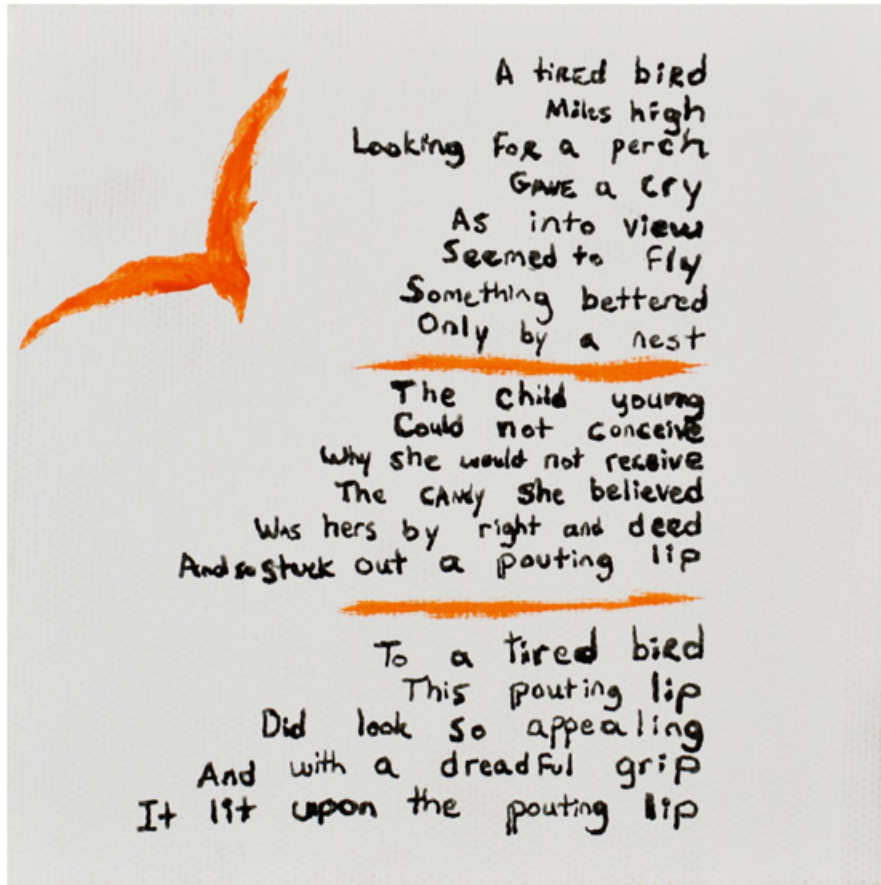 A tired bird
Miles high
Looking For a perch
Gave a cry
As into view
Seemed to Fly
Something bettered
Only by a nest
The child young
Could not conceive
Why she would not receive
The candy she believed
Was hers by right and deed
And so stuck out a pouting lip
To a tired bird
This pouting lip
Did look so appealing
And with a dreadful grip
It lit upon the pouting lip